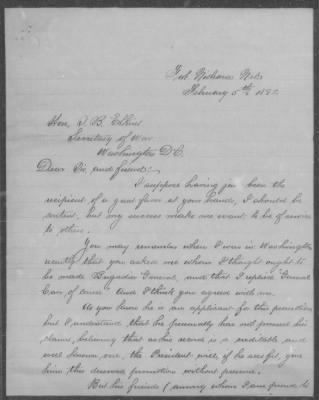 February 5th 189
Hon. S. B. Elkins
Secretary of War
Washington D.C.
Dear Sir and friend:-
I suppose having just been the
recipient of a great favor at your hands, I should be
content, but my success makes me want to be of service
to others.
You may remember when I was in Washington
recently that you asked me whom I thought ought to
be made Brigadier General, and that I replied General
Carr of course. And I think you agreed with me.
As you know he is an applicant for this promotion
but I understand that he personally has not pressed his
claims, believing that as his record is a creditable and
well known one, the President will, if he sees fit, give
him this deserved promotion without pressure.
But his friends (among whom I am proud to